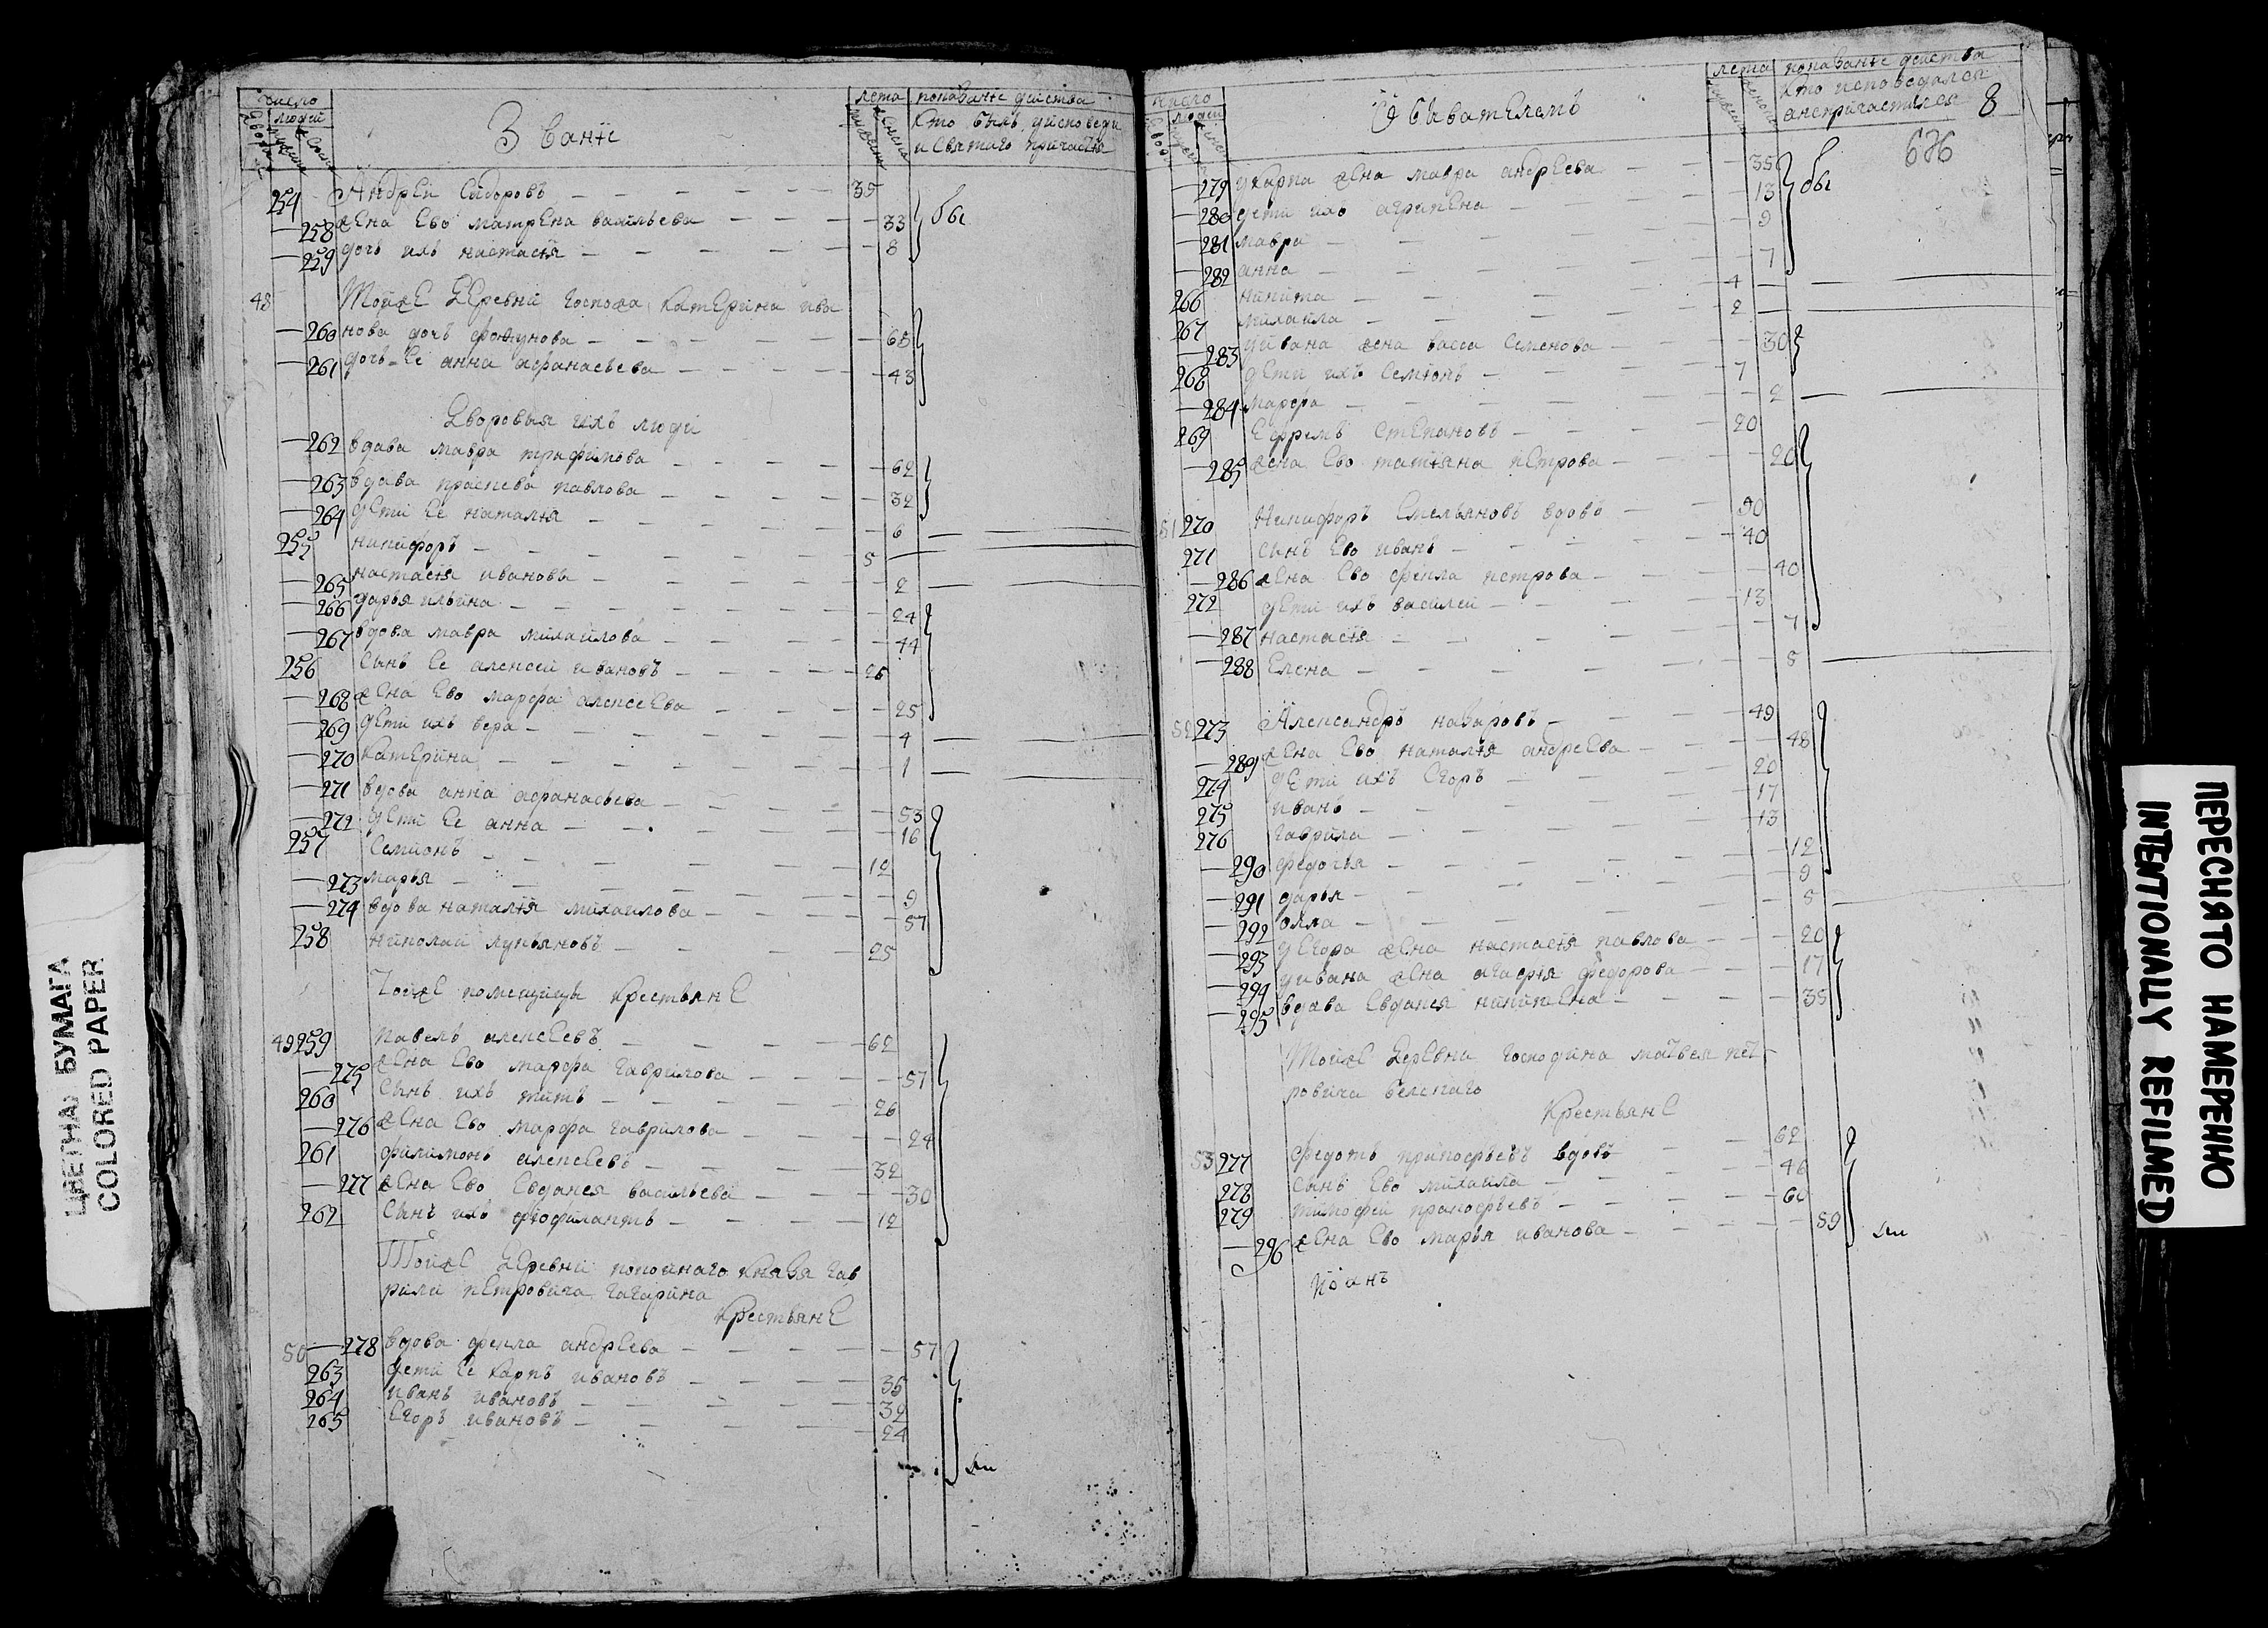 число
людей
Званїе
лета
показанїе действа
кто былъ уисповеди
и Святаго причастїя
254 Андрей Сидоровъ — 35
— 258 жена Ево матрена васильева — 33 бы
— 259 дочь ихъ настасїя — 8
48 Тойже Деревни госпожа Катерина ива
— 260 нова дочь — 65
— 261 дочь Ее анна афанасьева — 43
Дворовыя ихъ люди
— 262 вдава мавра трафимова — 62
— 263 вдава праскева павлова — 32
— 264 дети Ее наталїя — 6 —
255 никифоръ — 5 —
— 265 настасїя иванова — 2 —
— 266 дарья ильина — 24
— 267 вдова мавра михайлова — 44
256 Сынъ Ее алексей ивановъ — 26
— 268 жена Ево марфа алексеева — 25
— 269 дети ихъ вера — 4 —
— 270 катерина — 1 —
— 271 вдова анна афанасьева — 53
— 272 дети Ее анна — 16
257 Семионъ — 12
— 273 марья — 9
— 274 вдова наталїя михаилова — 57
258 николай лукьяновъ — 25
Тойже помещицы крестьянЕ
49 259 Павелъ алексеевъ — 62
— 275 жена Ево марфа гаврилова — 57
260 Сынъ ихъ титъ — 26
— 276 жена Ево марфа гаврилова — 24
261 филимонъ алексеевъ — 32
— 277 жена Ево Евдакея васильева — 30
262 Сынъ ихъ феофилактъ — 12
Тойже Деревни покойнаго князя гав
рилы петровича гагарина
КрестьянЕ
50 — 278 вдова фекла андреева — 57
263 дети Ее карпъ ивановъ — 35
264 иванъ ивановъ — 32
265 Егоръ ивановъ — 24
число
людей
Обывателемъ
лета
показанїе действа
кто исповедался
8
676
— 279 укарпа жена мавра андреева — 35 бы
— 280 дети ихъ агрипена — 13
— 281 мавра — 9
— 282 анна — 7
266 никита — 4 —
267 михайла — 2 —
— 283 уивана жена васса семенова — 30
268 дети ихъ Семїонъ — 7
— 284 марфа — 2 —
269 Ефремъ Степановъ — 20
— 285 жена Ево татїяна петрова — 20
51 270 Никифоръ Емельяновъ вдовъ — 90
271 сынъ Ево иванъ — 40
— 286 жена Ево фекла петрова — 40
272 дети ихъ василей — 13
— 287 настасїя — 7
— 288 Елена — 5 —
52 273 Александръ назаровъ — 49
— 289 жена Ево наталїя андреева — 48
274 дети ихъ Егоръ — 20
275 иванъ — 17
276 гаврила — 13
— 290 федосья — 12
— 291 дарья — 9
— 292 — 5 —
— 293 уЕгора жена настасїя павлова — 20
— 294 уивана жена агафїя федорова — 17
— 295 вдава Евдакея — 35
Тойже Деревни господина матвея пет
ровича белскаго
КрестьянЕ
53 277 Федотъ прокофьевъ вдовъ — 62
278 сынъ Ево михайла — 46
279 тимофей прокофьевъ — 60
— 296 жена Ево марья иванова — 59
ЦВЕТНАЯ БУМАГА
COLORED PAPER
ПЕРЕСНЯТО НАМЕРЕННО
INTENTIONALLY REFILMED